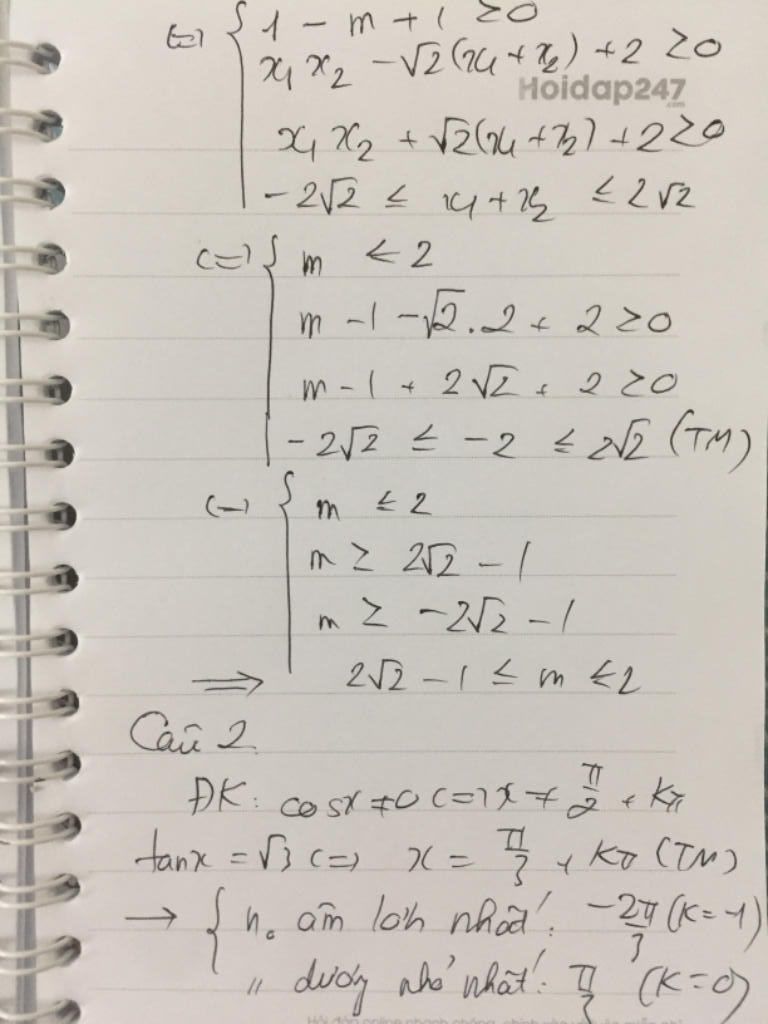 (=) { 1 - m + 1 ≥ 0
x₁ x₂ - √2(x₁ + x₂) + 2 ≥ 0
Hoidap247
.com
x₁ x₂ + √2(x₁ + x₂) + 2 ≥ 0
- 2√2 ≤ x₁ + x₂ ≤ 2√2
(=) { m ≤ 2
m - 1 - √2 . 2 + 2 ≥ 0
m - 1 + 2√2 + 2 ≥ 0
- 2√2 ≤ -2 ≤ 2√2 (TM)
(=) { m ≤ 2
m ≥ 2√2 - 1
m ≥ -2√2 - 1
⟹ 2√2 - 1 ≤ m ≤ 2
Câu 2
ĐK: cosx ≠ 0 (=) x ≠ π/2 + Kπ
tanx = √3 (=) x = π/3 + Kπ (TM)
→ { no âm lớn nhất: -2π/3 (K = -1)
" dương nhỏ nhất: π/3 (K = 0)